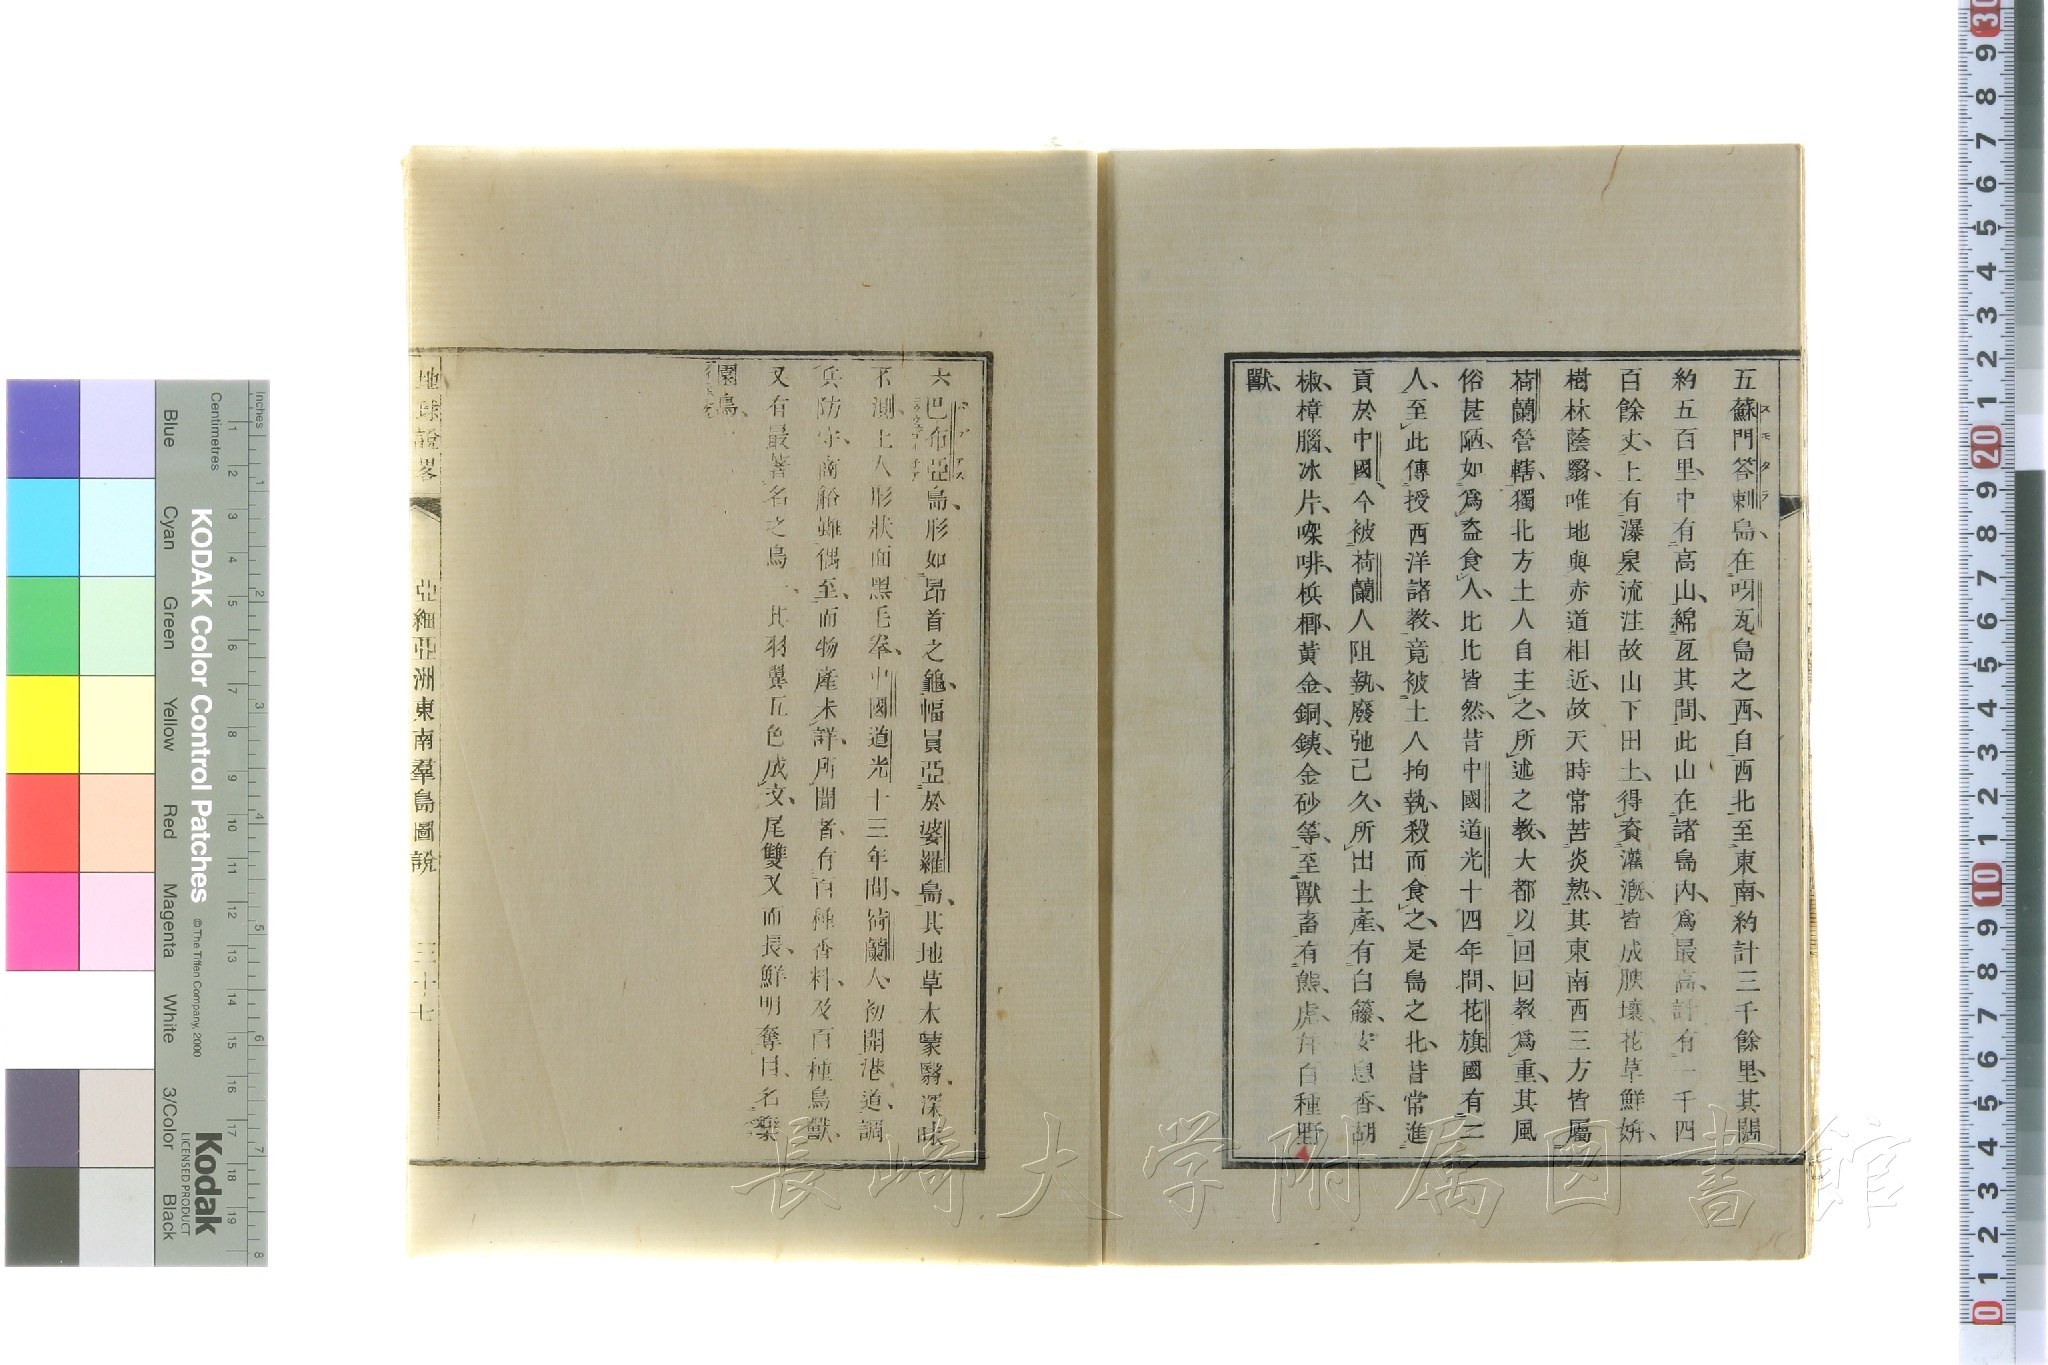 五蘇門答剌島在呀瓦島之西自西北至東南約計三千餘里其闊
スモタラ
約五百里中有高山綿亙其間此山在諸島內爲最高計有一千四
百餘丈上有瀑泉流注故山下田土得資灌漑皆成腴壤花草鮮姸
樹林蔭翳唯地與赤道相近故天時常苦炎熱其東南西三方皆屬
荷蘭管轄獨北方土人自主之所述之教大都以回回教爲重其風
俗甚陋如爲盜食人比比皆然昔中國道光十四年間花旗國有二
人至此傳授西洋諸教竟被土人拘執殺而食之是島之北昔常進
貢於中國今被荷蘭人阻執廢弛已久所出土產有白籐安息香胡
椒樟腦冰片㗎啡梹榔黃金銅銕金砂等至獸畜有熊虎年百種野
獸
六巴布亞島形如昂首之龜幅員亞於婆羅島其地草木蒙翳深味
不測土人形狀面黑毛拳中國道光十三年間荷蘭人初開港道調
兵防守商船雖偶至而物產未詳所聞者有百種香料及百種鳥獸
又有最著名之鳥一其羽翼五色成文尾雙叉而長鮮明奪目名樂
園鳥
地球說畧
亞細亞洲東南羣島圖說
三十七
長崎大学附属図書館
KODAK Color Control Patches
© The Tiffen Company, 2000
Kodak
LICENSED PRODUCT
Inches
Centimetres
Blue
Cyan
Green
Yellow
Red
Magenta
White
3/Color
Black